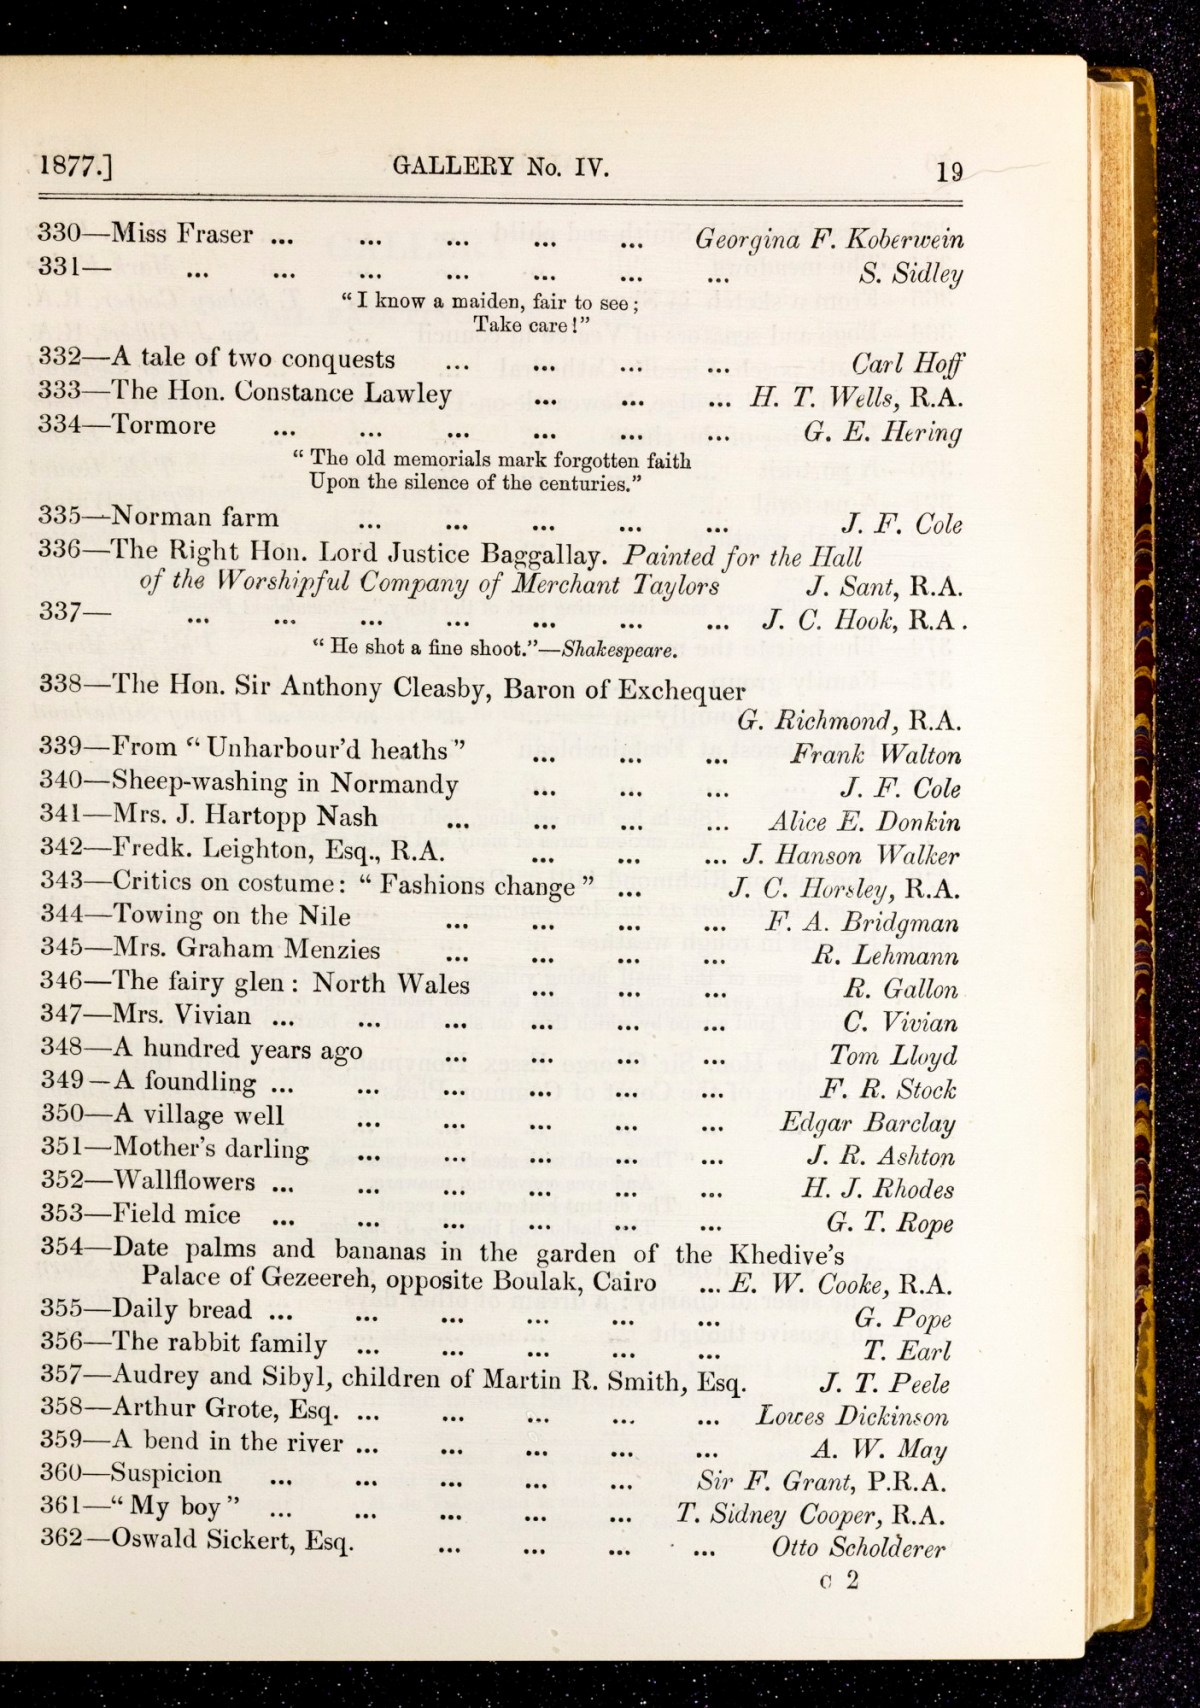 1877.] GALLERY No. IV. 19
330—Miss Fraser ... ... ... ... ... Georgina F. Koberwein
331— ... ... ... ... ... ... ... S. Sidley
“I know a maiden, fair to see;
Take care!”
332—A tale of two conquests ... ... ... ... Carl Hoff
333—The Hon. Constance Lawley ... ... ... H. T. Wells, R.A.
334—Tormore ... ... ... ... ... ... G. E. Hering
“The old memorials mark forgotten faith
Upon the silence of the centuries.”
335—Norman farm ... ... ... ... ... J. F. Cole
336—The Right Hon. Lord Justice Baggallay. Painted for the Hall
of the Worshipful Company of Merchant Taylors J. Sant, R.A.
337— ... ... ... ... ... ... ... J. C. Hook, R.A.
“He shot a fine shoot.”—Shakespeare.
338—The Hon. Sir Anthony Cleasby, Baron of Exchequer
G. Richmond, R.A.
339—From “Unharbour’d heaths” ... ... ... Frank Walton
340—Sheep-washing in Normandy ... ... ... J. F. Cole
341—Mrs. J. Hartopp Nash ... ... ... ... Alice E. Donkin
342—Fredk. Leighton, Esq., R.A. ... ... ... J. Hanson Walker
343—Critics on costume: “Fashions change” ... J. C. Horsley, R.A.
344—Towing on the Nile ... ... ... ... F. A. Bridgman
345—Mrs. Graham Menzies ... ... ... ... R. Lehmann
346—The fairy glen: North Wales ... ... ... R. Gallon
347—Mrs. Vivian ... ... ... ... ... ... C. Vivian
348—A hundred years ago ... ... ... ... Tom Lloyd
349—A foundling ... ... ... ... ... ... F. R. Stock
350—A village well ... ... ... ... ... Edgar Barclay
351—Mother’s darling ... ... ... ... ... J. R. Ashton
352—Wallflowers ... ... ... ... ... ... H. J. Rhodes
353—Field mice ... ... ... ... ... ... G. T. Rope
354—Date palms and bananas in the garden of the Khedive’s
Palace of Gezeereh, opposite Boulak, Cairo ... E. W. Cooke, R.A.
355—Daily bread ... ... ... ... ... ... G. Pope
356—The rabbit family ... ... ... ... ... T. Earl
357—Audrey and Sibyl, children of Martin R. Smith, Esq. J. T. Peele
358—Arthur Grote, Esq. ... ... ... ... ... Lowes Dickinson
359—A bend in the river ... ... ... ... ... A. W. May
360—Suspicion ... ... ... ... ... Sir F. Grant, P.R.A.
361—“My boy” ... ... ... ... ... T. Sidney Cooper, R.A.
362—Oswald Sickert, Esq. ... ... ... ... Otto Scholderer
C 2